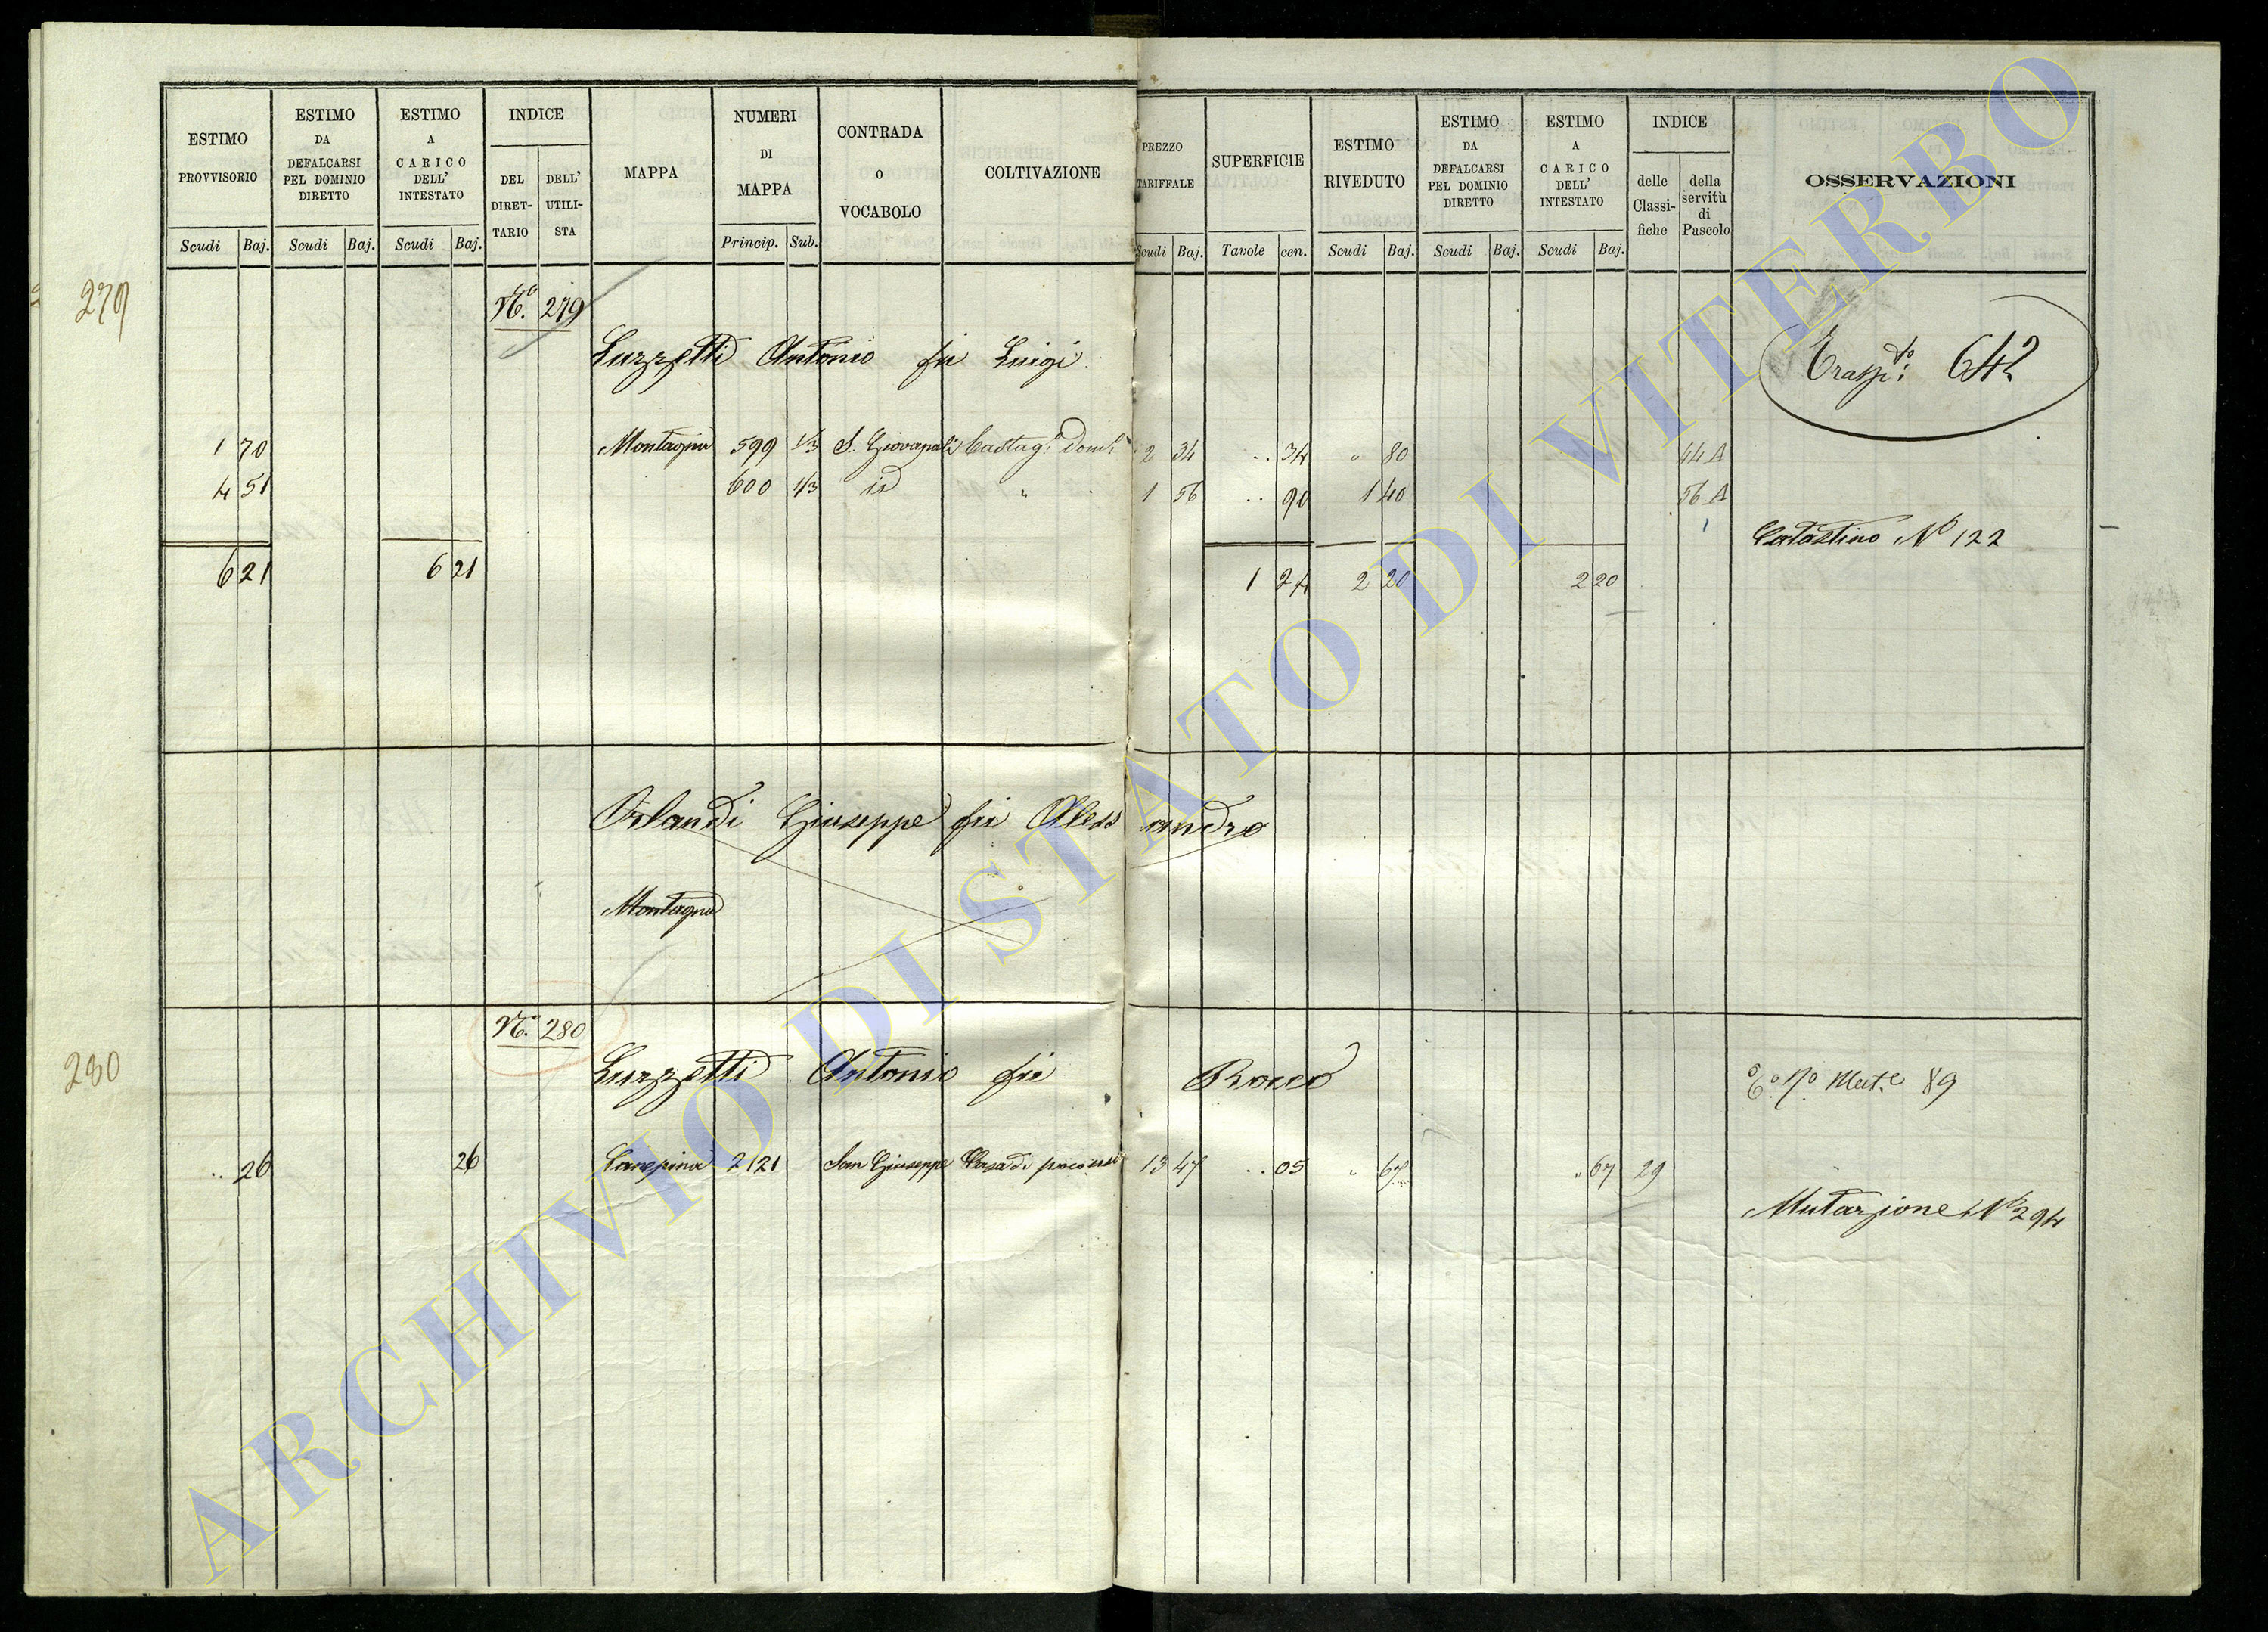 ESTIMO PROVVISORIO | ESTIMO DA DEFALCARSI PEL DOMINIO DIRETTO | ESTIMO A CARICO DELL' INTESTATO | INDICE | MAPPA | NUMERI DI MAPPA | CONTRADA O VOCABOLO | COLTIVAZIONE | PREZZO TARIFFALE | SUPERFICIE | ESTIMO RIVEDUTO | ESTIMO DA DEFALCARSI PEL DOMINIO DIRETTO | ESTIMO A CARICO DELL' INTESTATO | INDICE | OSSERVAZIONI
DEL DIRET-TARIO | DELL' UTILI-STA | delle Classi-fiche | della servitù di Pascolo
Scudi Baj. Scudi Baj. Scudi Baj. Princip. Sub. Scudi Baj. Tavole cen. Scudi Baj. Scudi Baj. Scudi Baj.
279 No. 279
Luzzetti Antonio fu Luigi
Trasp.to: 642
1 70 Montagna 599 1/3 S. Giovanale Castag. Dom. 2 34 .. 34 " 80 44 A
4 51 600 1/3 id " 1 56 .. 90 1 40 56 A
Catastino No 122
6 21 6 21 1 24 2 20 2 20
Orlandi Giuseppe fu Alessandro
Montagna
280 No. 280
Luzzetti Antonio fu Rocco
Mut.e 89
.. 26 26 Canepina 2121 San Giuseppe Casa di proc. uso 13 47 .. 05 " 67 " 67 29
Mutazione No 294
ARCHIVIO DI STATO DI VITERBO